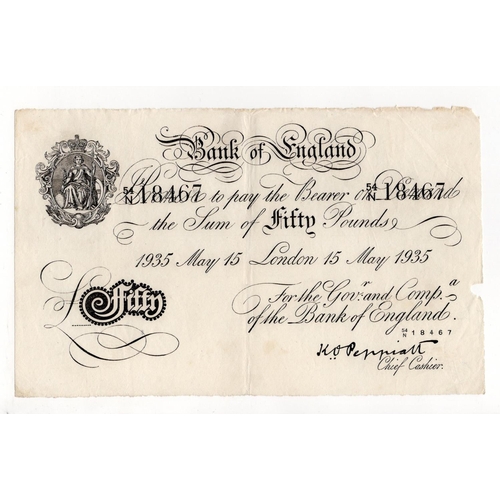 Bank of England
54/N 18467 to pay the Bearer 54/N 18467
the Sum of Fifty Pounds
1935 May 15 London 15 May 1935
£ Fifty
For the Gov.r and Comp.a
of the Bank of England.
54/N 18467
K O Peppiatt
Chief Cashier.